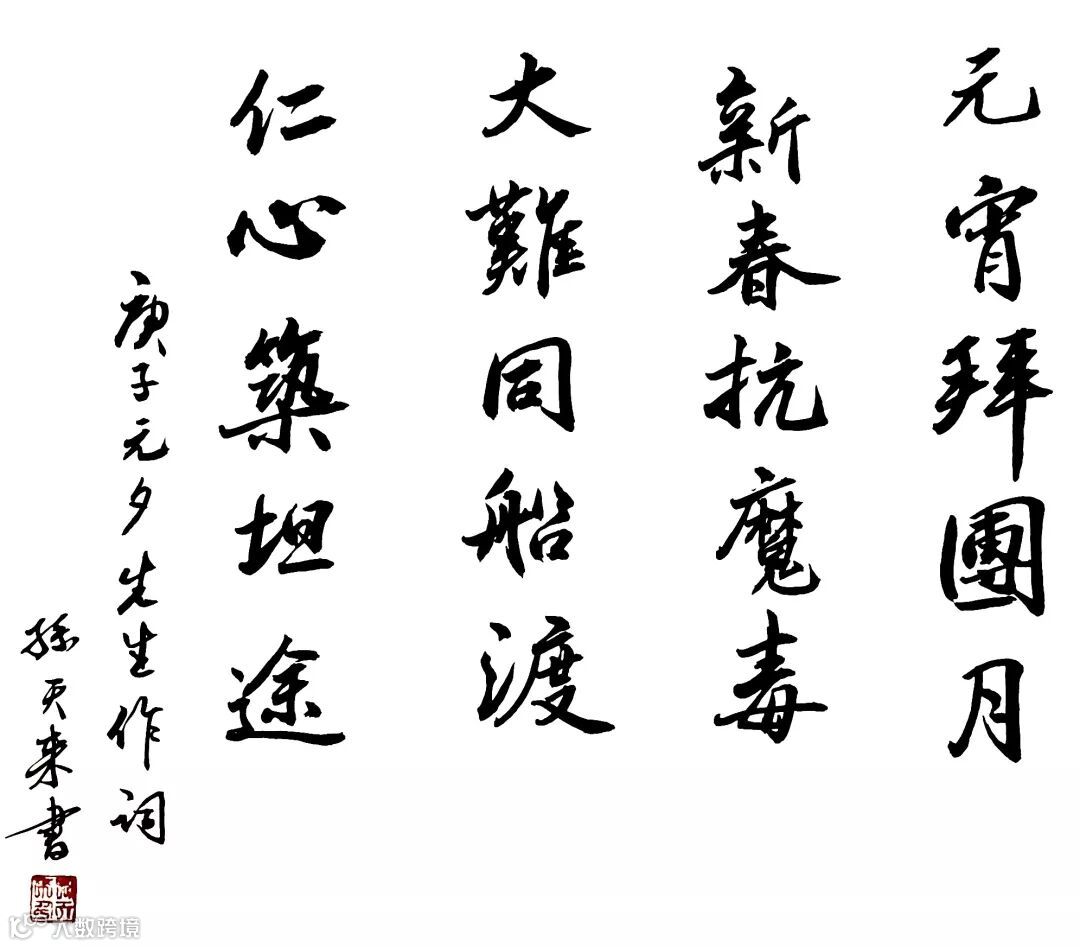 元宵拜團月
新春抗魔毒
大難同船渡
仁心築坦途
庚子元夕先生作詞
孫天来書
大数跨境